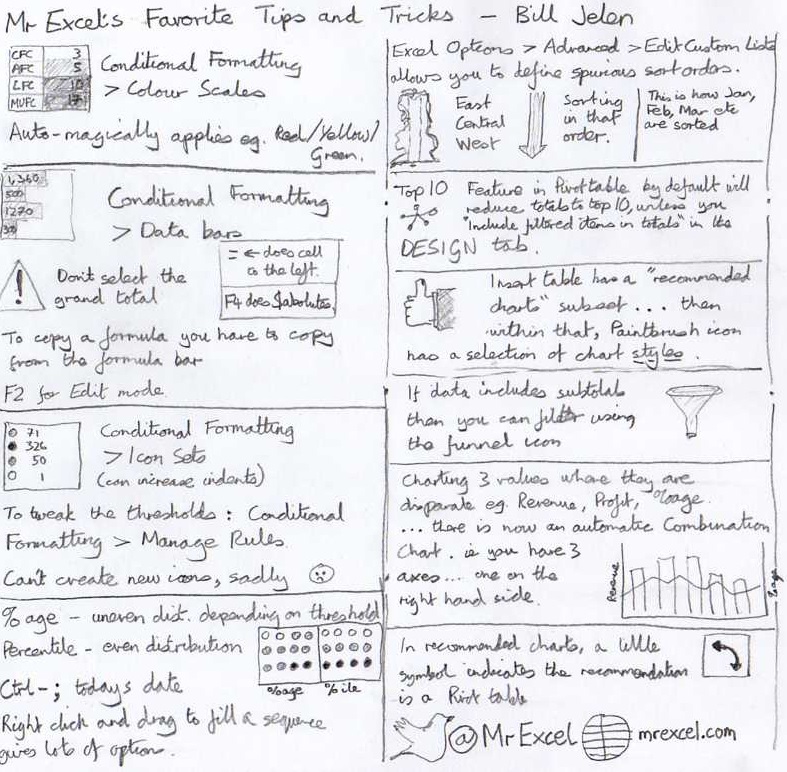 Mr Excel's Favorite Tips and Tricks - Bill Jelen
CFC 3
AFC 5
LFC 10
MUFC 17
Conditional Formatting
> Colour Scales
Auto-magically applies eg. Red/Yellow/
Green.
1,360
500
1270
30
Conditional Formatting
> Data bars
! Don't select the
grand total
= ← does cell
to the left.
F4 does $absolutes.
To copy a formula you have to copy
from the formula bar
F2 for Edit mode
71
326
50
1
Conditional Formatting
> Icon Sets
(can increase indents)
To tweak the thresholds : Conditional
Formatting > Manage Rules.
Can't create new icons, sadly
%age - uneven dist. depending on threshold
Percentile - even distribution
%age %ile
Ctrl-; todays date
Right click and drag to fill a sequence
gives lots of options.
Excel Options > Advanced > Edit Custom Lists
allows you to define spurious sort orders.
East
Central
West
Sorting
in that
order.
This is how Jan,
Feb, Mar etc
are sorted
Top 10 Feature in Pivottable by default will
reduce totals to top 10, unless you
"Include filtered items in totals" in the
DESIGN tab.
Insert table has a "recommended
charts" subset ... then
within that, Paintbrush icon
has a selection of chart styles.
If data includes subtotals
then you can filter using
the funnel icon
Charting 3 values where they are
disparate eg. Revenue, Profit, %age.
... there is now an automatic Combination
Chart. ie you have 3
axes... one on the
right hand side.
Revenue
%age
In recommended charts, a little
symbol indicates the recommendation
is a Pivot table
@MrExcel mrexcel.com